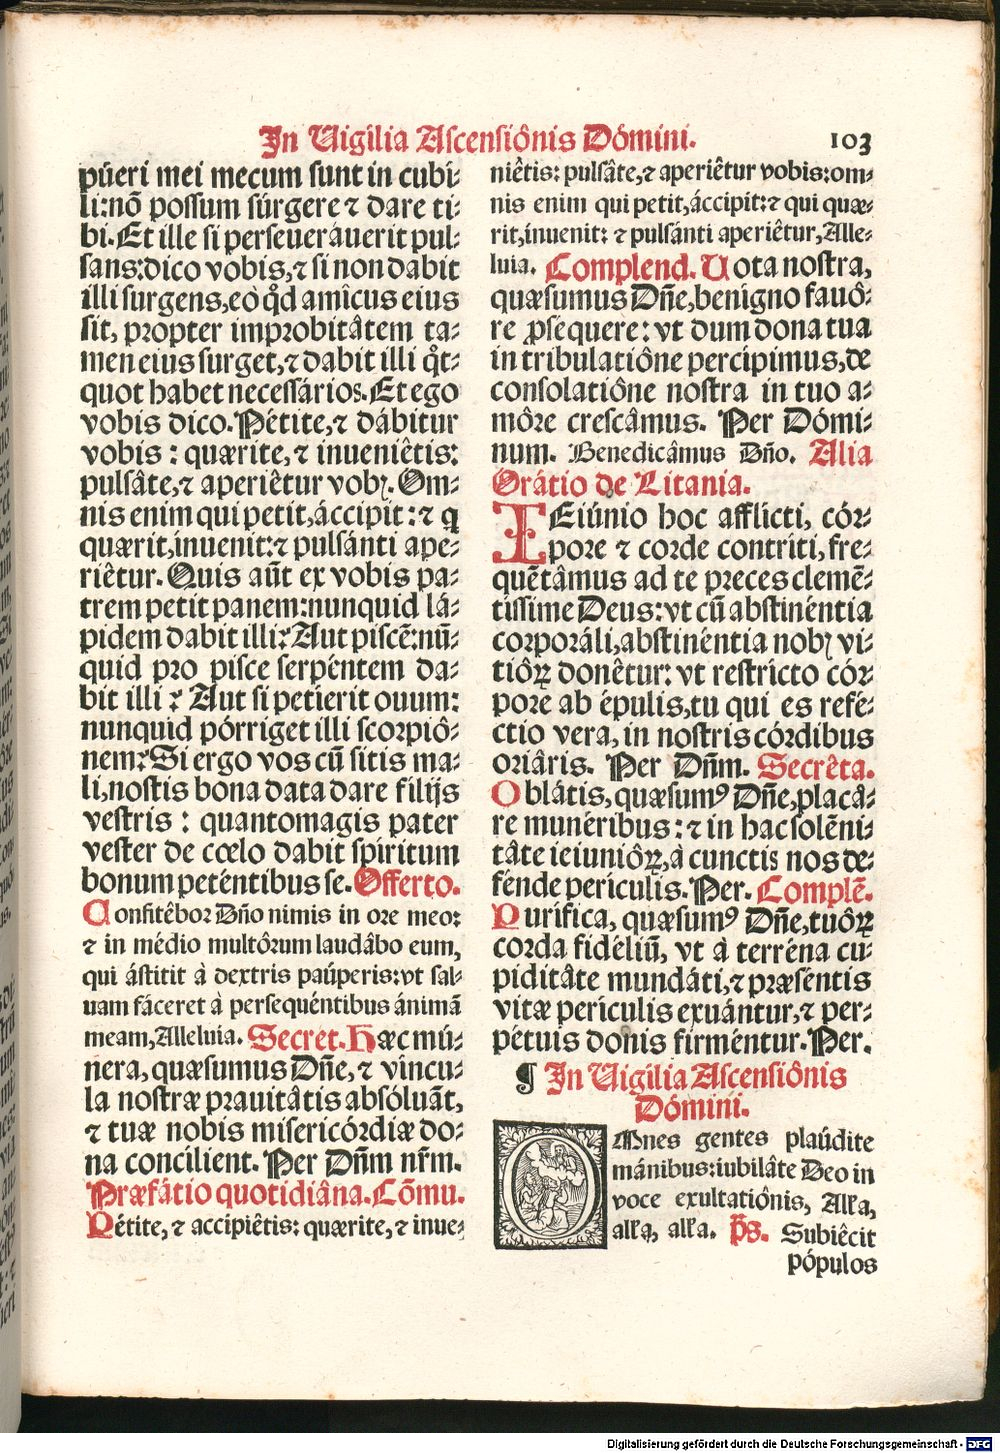 In Vigilia Ascensiônis Dómini.
103
púeri mei mecum sunt in cubi⸗
li: nõ possum súrgere ⁊ dare ti⸗
bi. Et ille si perseuerâuerit pul⸗
sans: dico vobis, ⁊ si non dabit
illi surgens, eò q̊d amîcus eius
sit, propter improbitâtem ta⸗
men eius surget, ⁊ dabit illi q̊t⸗
quot habet necessários. Et ego
vobis dico. Pétite, ⁊ dábitur
vobis : quærite, ⁊ inueniêtis:
pulsâte, ⁊ aperiêtur vobꝭ. Om⸗
nis enim qui petit, áccipit: ⁊ q
quærit, ínuenit: ⁊ pulsánti ape⸗
riêtur. Quis aût ex vobis pa⸗
trem petit panem: nunquid lá⸗
pidem dabit illi? Aut piscẽ: nũ⸗
quid pro pisce serpéntem da⸗
bit illi ? Aut si petierit ouum:
nunquid pórriget illi scorpiô⸗
nem? Si ergo vos cũ sitis ma⸗
li, nostis bona data dare filijs
vestris : quantomagis pater
vester de cœlo dabit spíritum
bonum peténtibus se. Offerto.
Confitêbor Dño nimis in ore meo:
⁊ in médio multôrum laudâbo eum,
qui ástitit à dextris paúperis: vt sal⸗
uam fáceret à persequéntibus ánimã
meam, Alleluia. Secret. Hæc mú⸗
nera, quæsumus Dñe, ⁊ víncu⸗
la nostræ prauitâtis absóluãt,
⁊ tuæ nobis misericórdiæ do⸗
na concílient. Per Dñm nr̃m.
Præfátio quotidiâna. Cõmu.
Pétite, ⁊ accipiêtis: quærite, ⁊ inue⸗
niêtis: pulsâte, ⁊ aperiêtur vobis: om⸗
nis enim qui petit, áccipit: ⁊ qui quæ⸗
rit, ínuenit: ⁊ pulsánti aperiêtur, Alle⸗
luia. Complend. Vota nostra,
quæsumus Dñe, benígno fauô⸗
re ꝓséquere: vt dum dona tua
in tribulatiône percípimus, de
consolatiône nostra in tuo a⸗
môre crescâmus. Per Dómi⸗
num. Benedicâmus Dño. Alia
Orátio de Litania.
IEiúnio hoc afflicti, cór⸗
pore ⁊ corde contríti, fre⸗
quẽtâmus ad te preces clemẽ⸗
tíssime Deus: vt cũ abstinéntia
corporáli, abstinéntia nobꝭ vi⸗
tiôꝝ donêtur: vt restricto cór⸗
pore ab épulis, tu qui es refé⸗
ctio vera, in nostris córdibus
oriâris. Per Dñm. Secrêta.
Oblâtis, quæsumꝰ Dñe, placâ⸗
re munéribus: ⁊ in hac solẽni⸗
tâte ieiuniôꝝ, à cunctis nos de⸗
fénde perículis. Per. Complẽ.
Purífica, quæsumꝰ Dñe, tuôꝝ
corda fidéliũ, vt à terréna cu⸗
piditâte mundáti, ⁊ præséntis
vitæ perículis exuántur, ⁊ per⸗
pétuis donis firméntur. Per.
¶ In Vigilia Ascensiônis
Dómini.
OMnes gentes plaúdite
mánibus: iubilâte Deo in
voce exultatiônis, Alľa,
alľa, alľa. P̃s. Subiêcit
pópulos
Digitalisierung gefördert durch die Deutsche Forschungsgemeinschaft - DFG